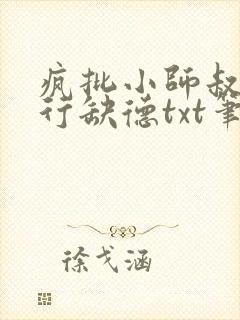 疯批小师叔
行缺德txt笔
徐戈涵